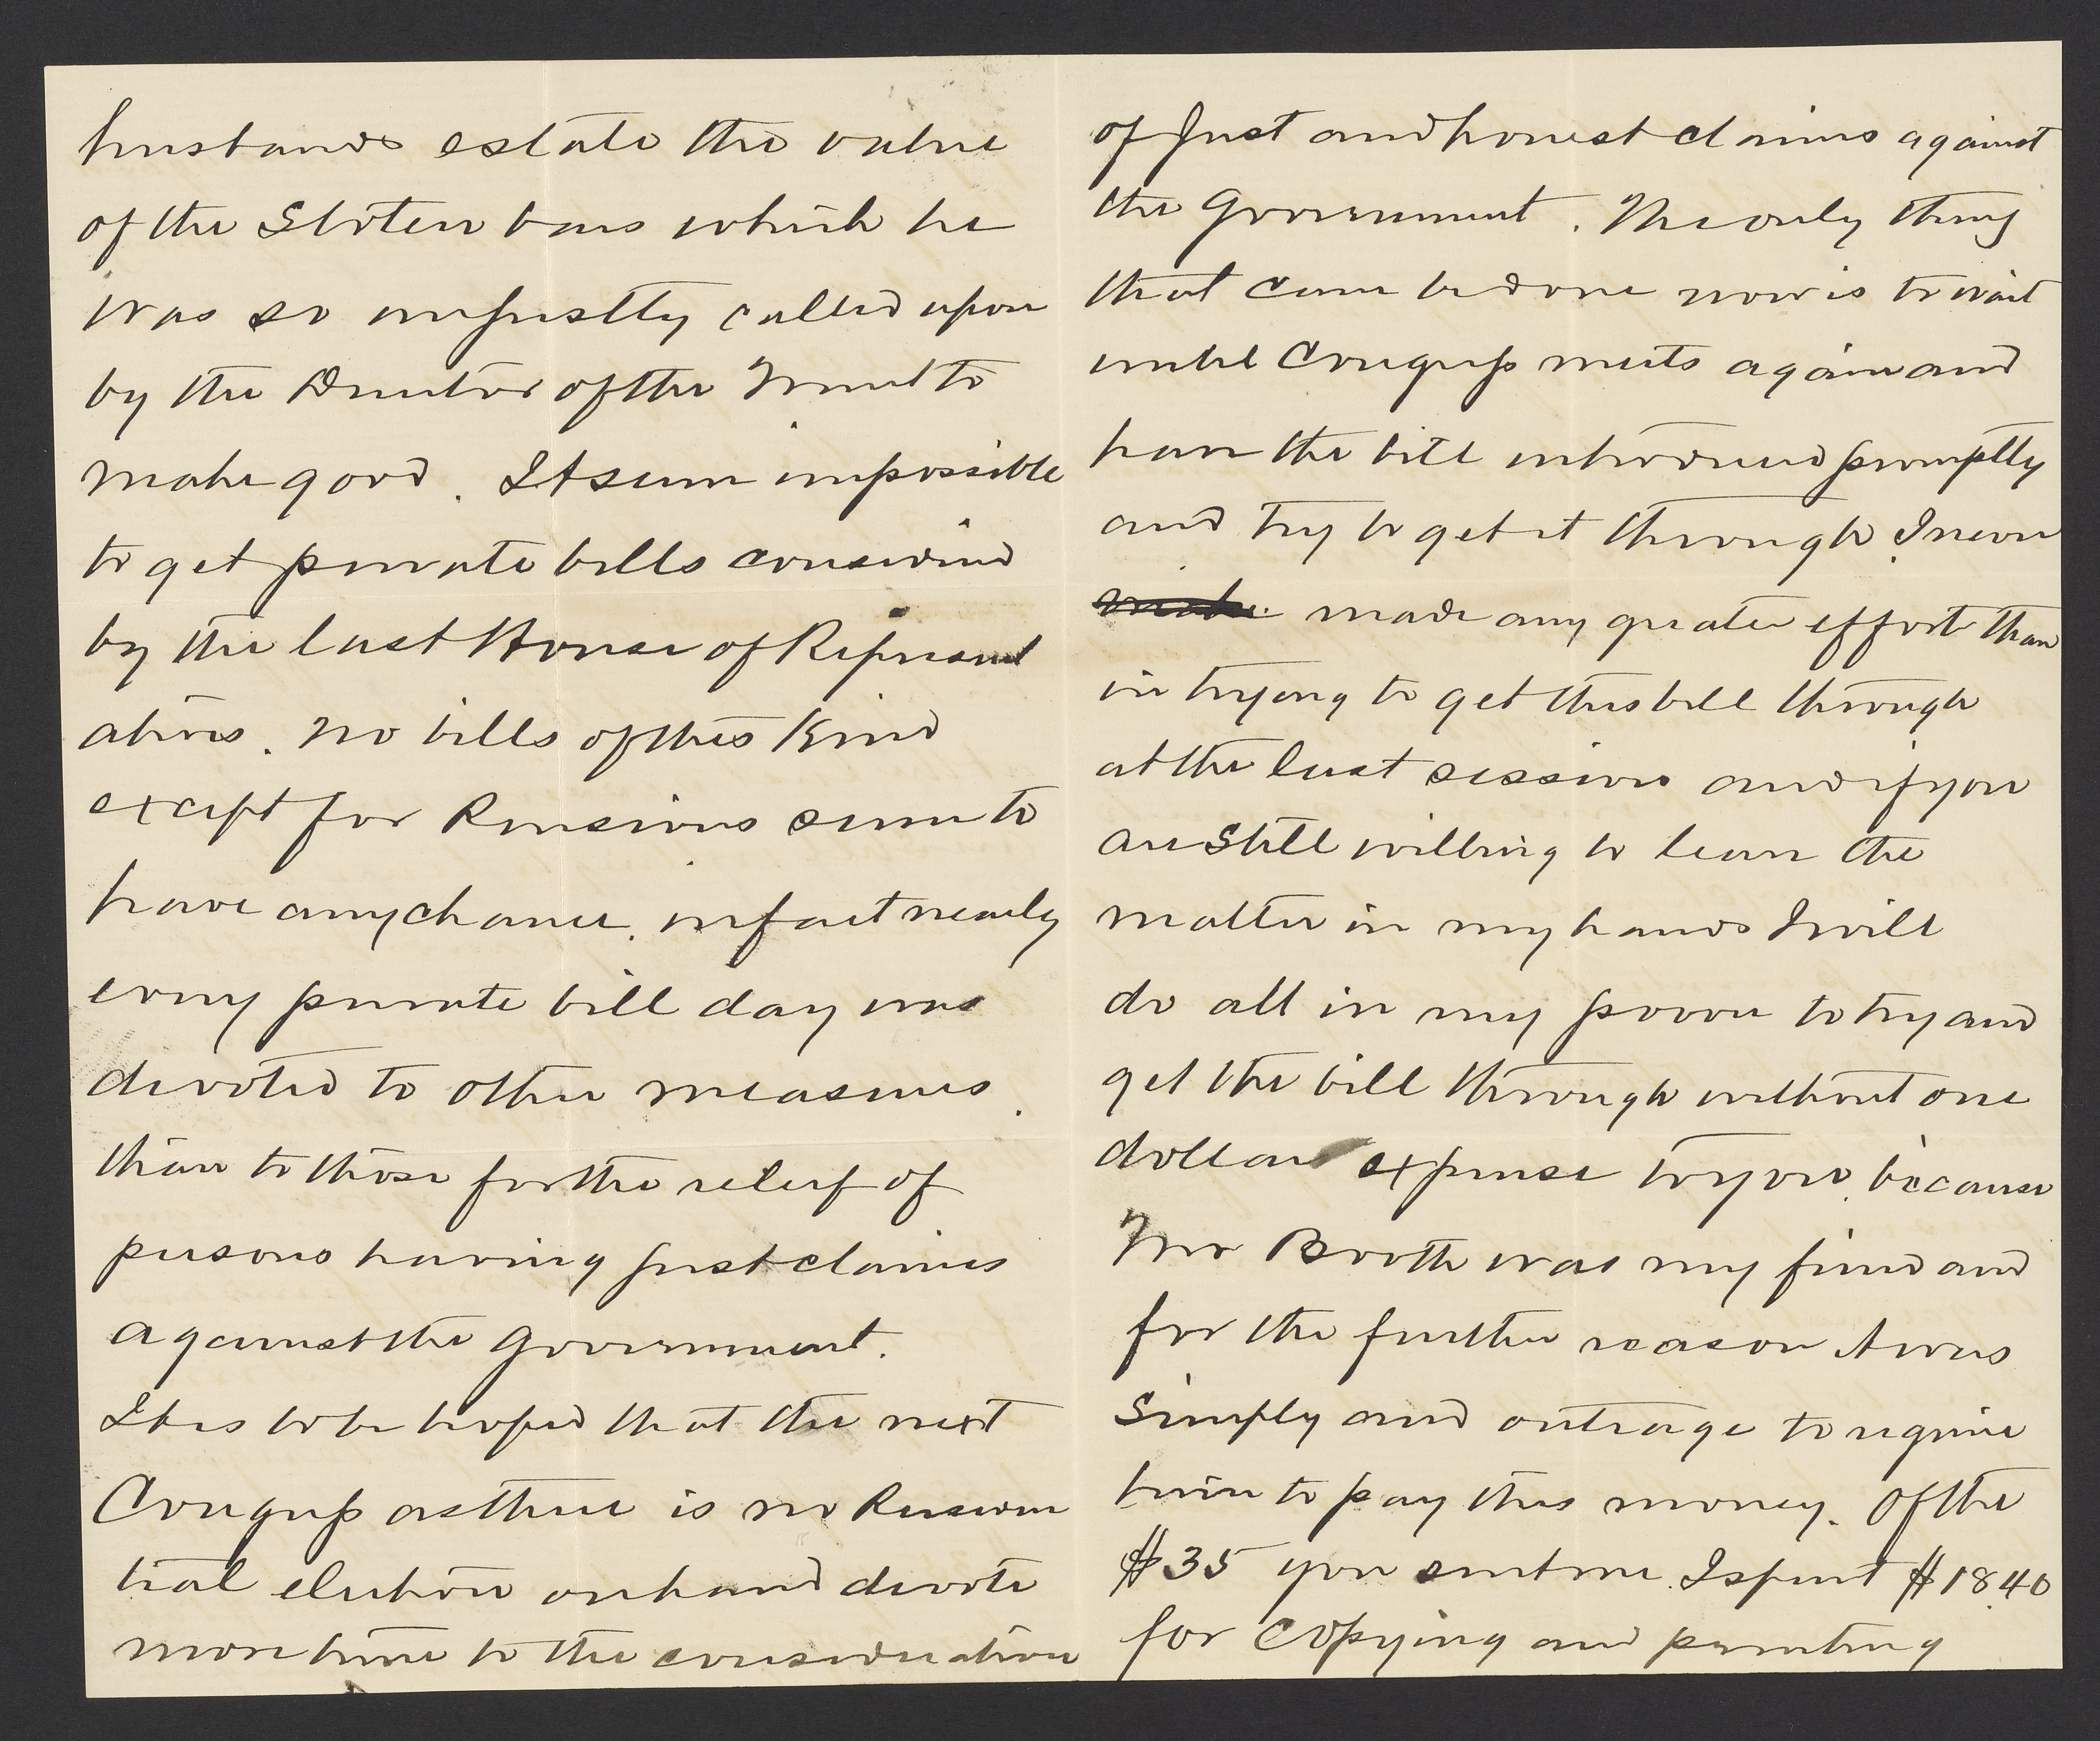 husbands estate the value
of the Stolen bars which he
was so unjustly called upon
by the Director of the Mint to
make good. It seem impossible
to get private bills considered
by the last House of Represent
atives. No bills of this kind
except for Pensions seem to
have any chance. in fact nearly
every private bill day was
devoted to other measures.
than to those for the relief of
persons having just claims
against the Government.
It is to be hoped that the next
Congress as there is no Presiden
tial election on hand devote
more time to the consideration
of Just and honest claims against
the Government. The only thing
that can be done now is to wait
until Congress meets again and
have the bill introduced promptly
and try to get it through. I never
made any greater effort than
in trying to get this bill through
at the last session and if you
are Still willing to leave the
matter in my hands I will
do all in my power to try and
get the bill through without one
dollar expense to you. because
Mr Booth was my friend and
for the further reason it was
Simply and outrage to require
him to pay this money. Of the
$35 you sent me. I spent $18.40
for Copying and printing